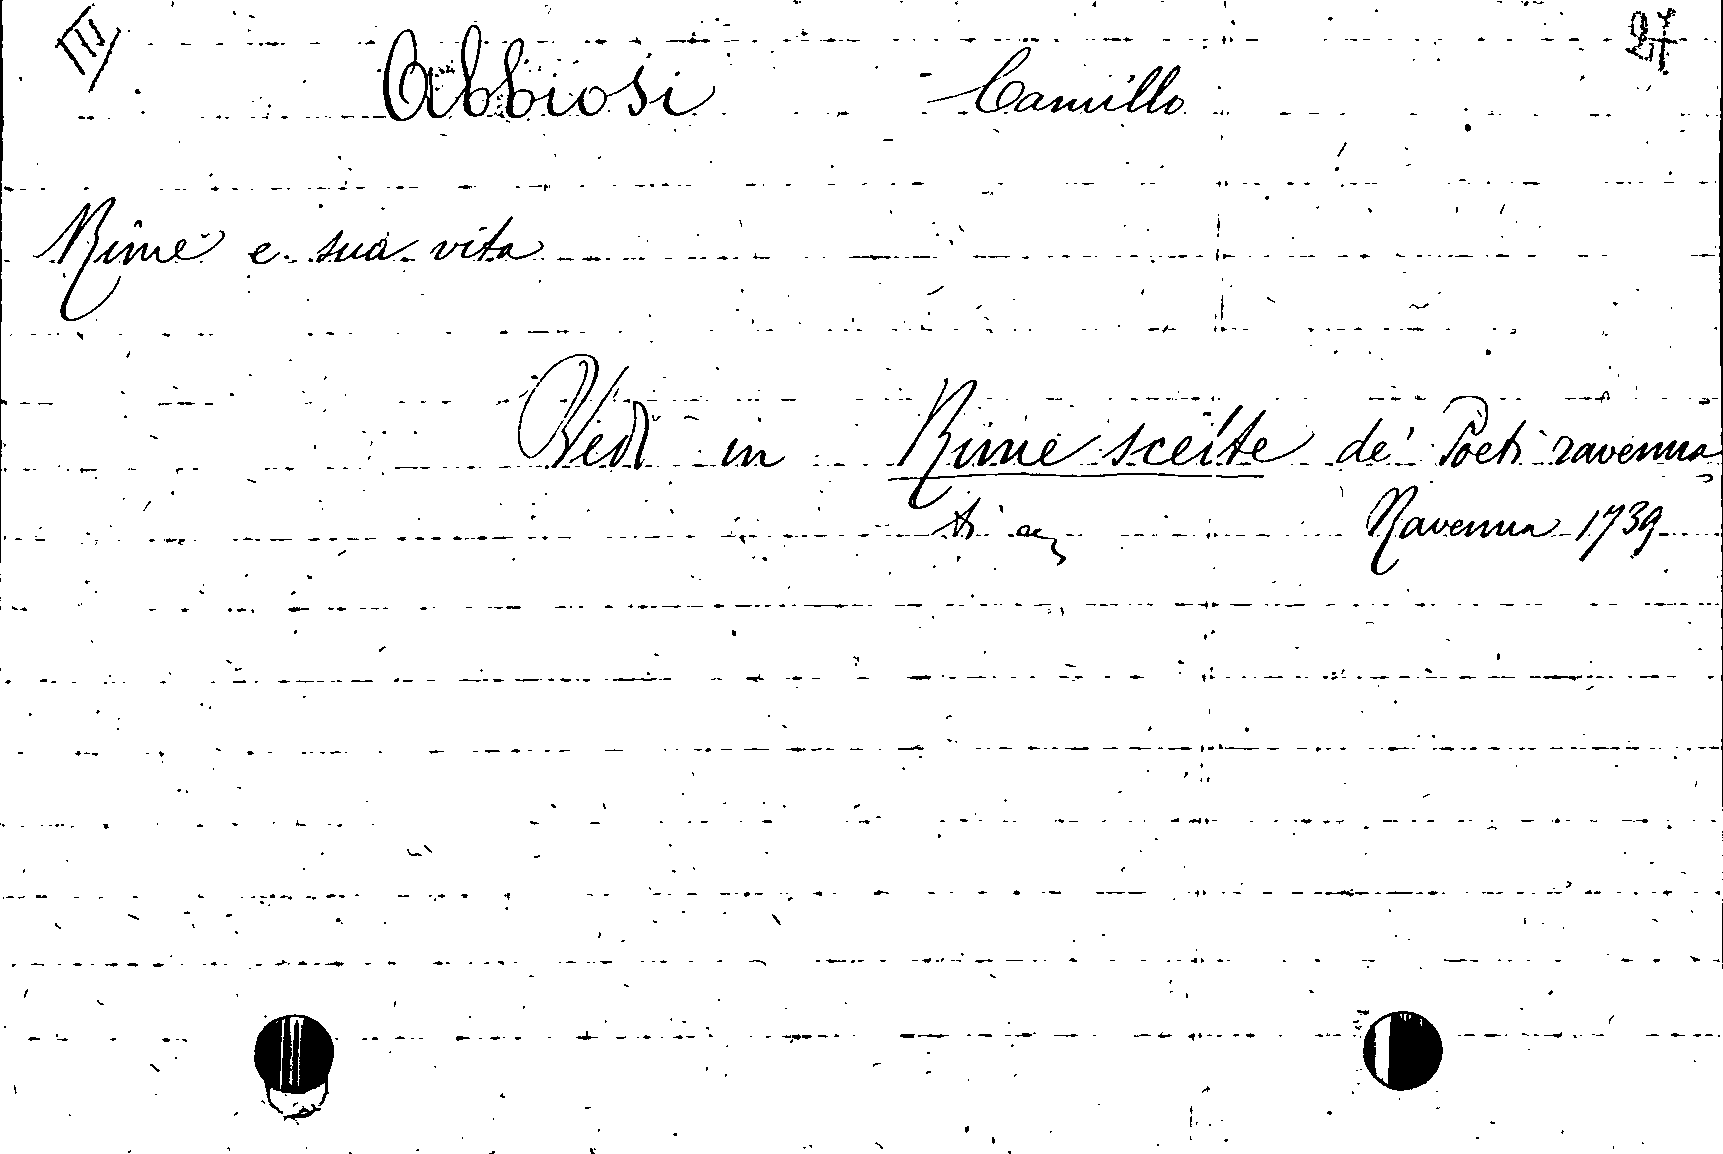 III 27
Abbiosi Camillo
Rime e sua vita
Vedi in Rime scelte de' Poeti ravenna
ti
Ravenna 1739